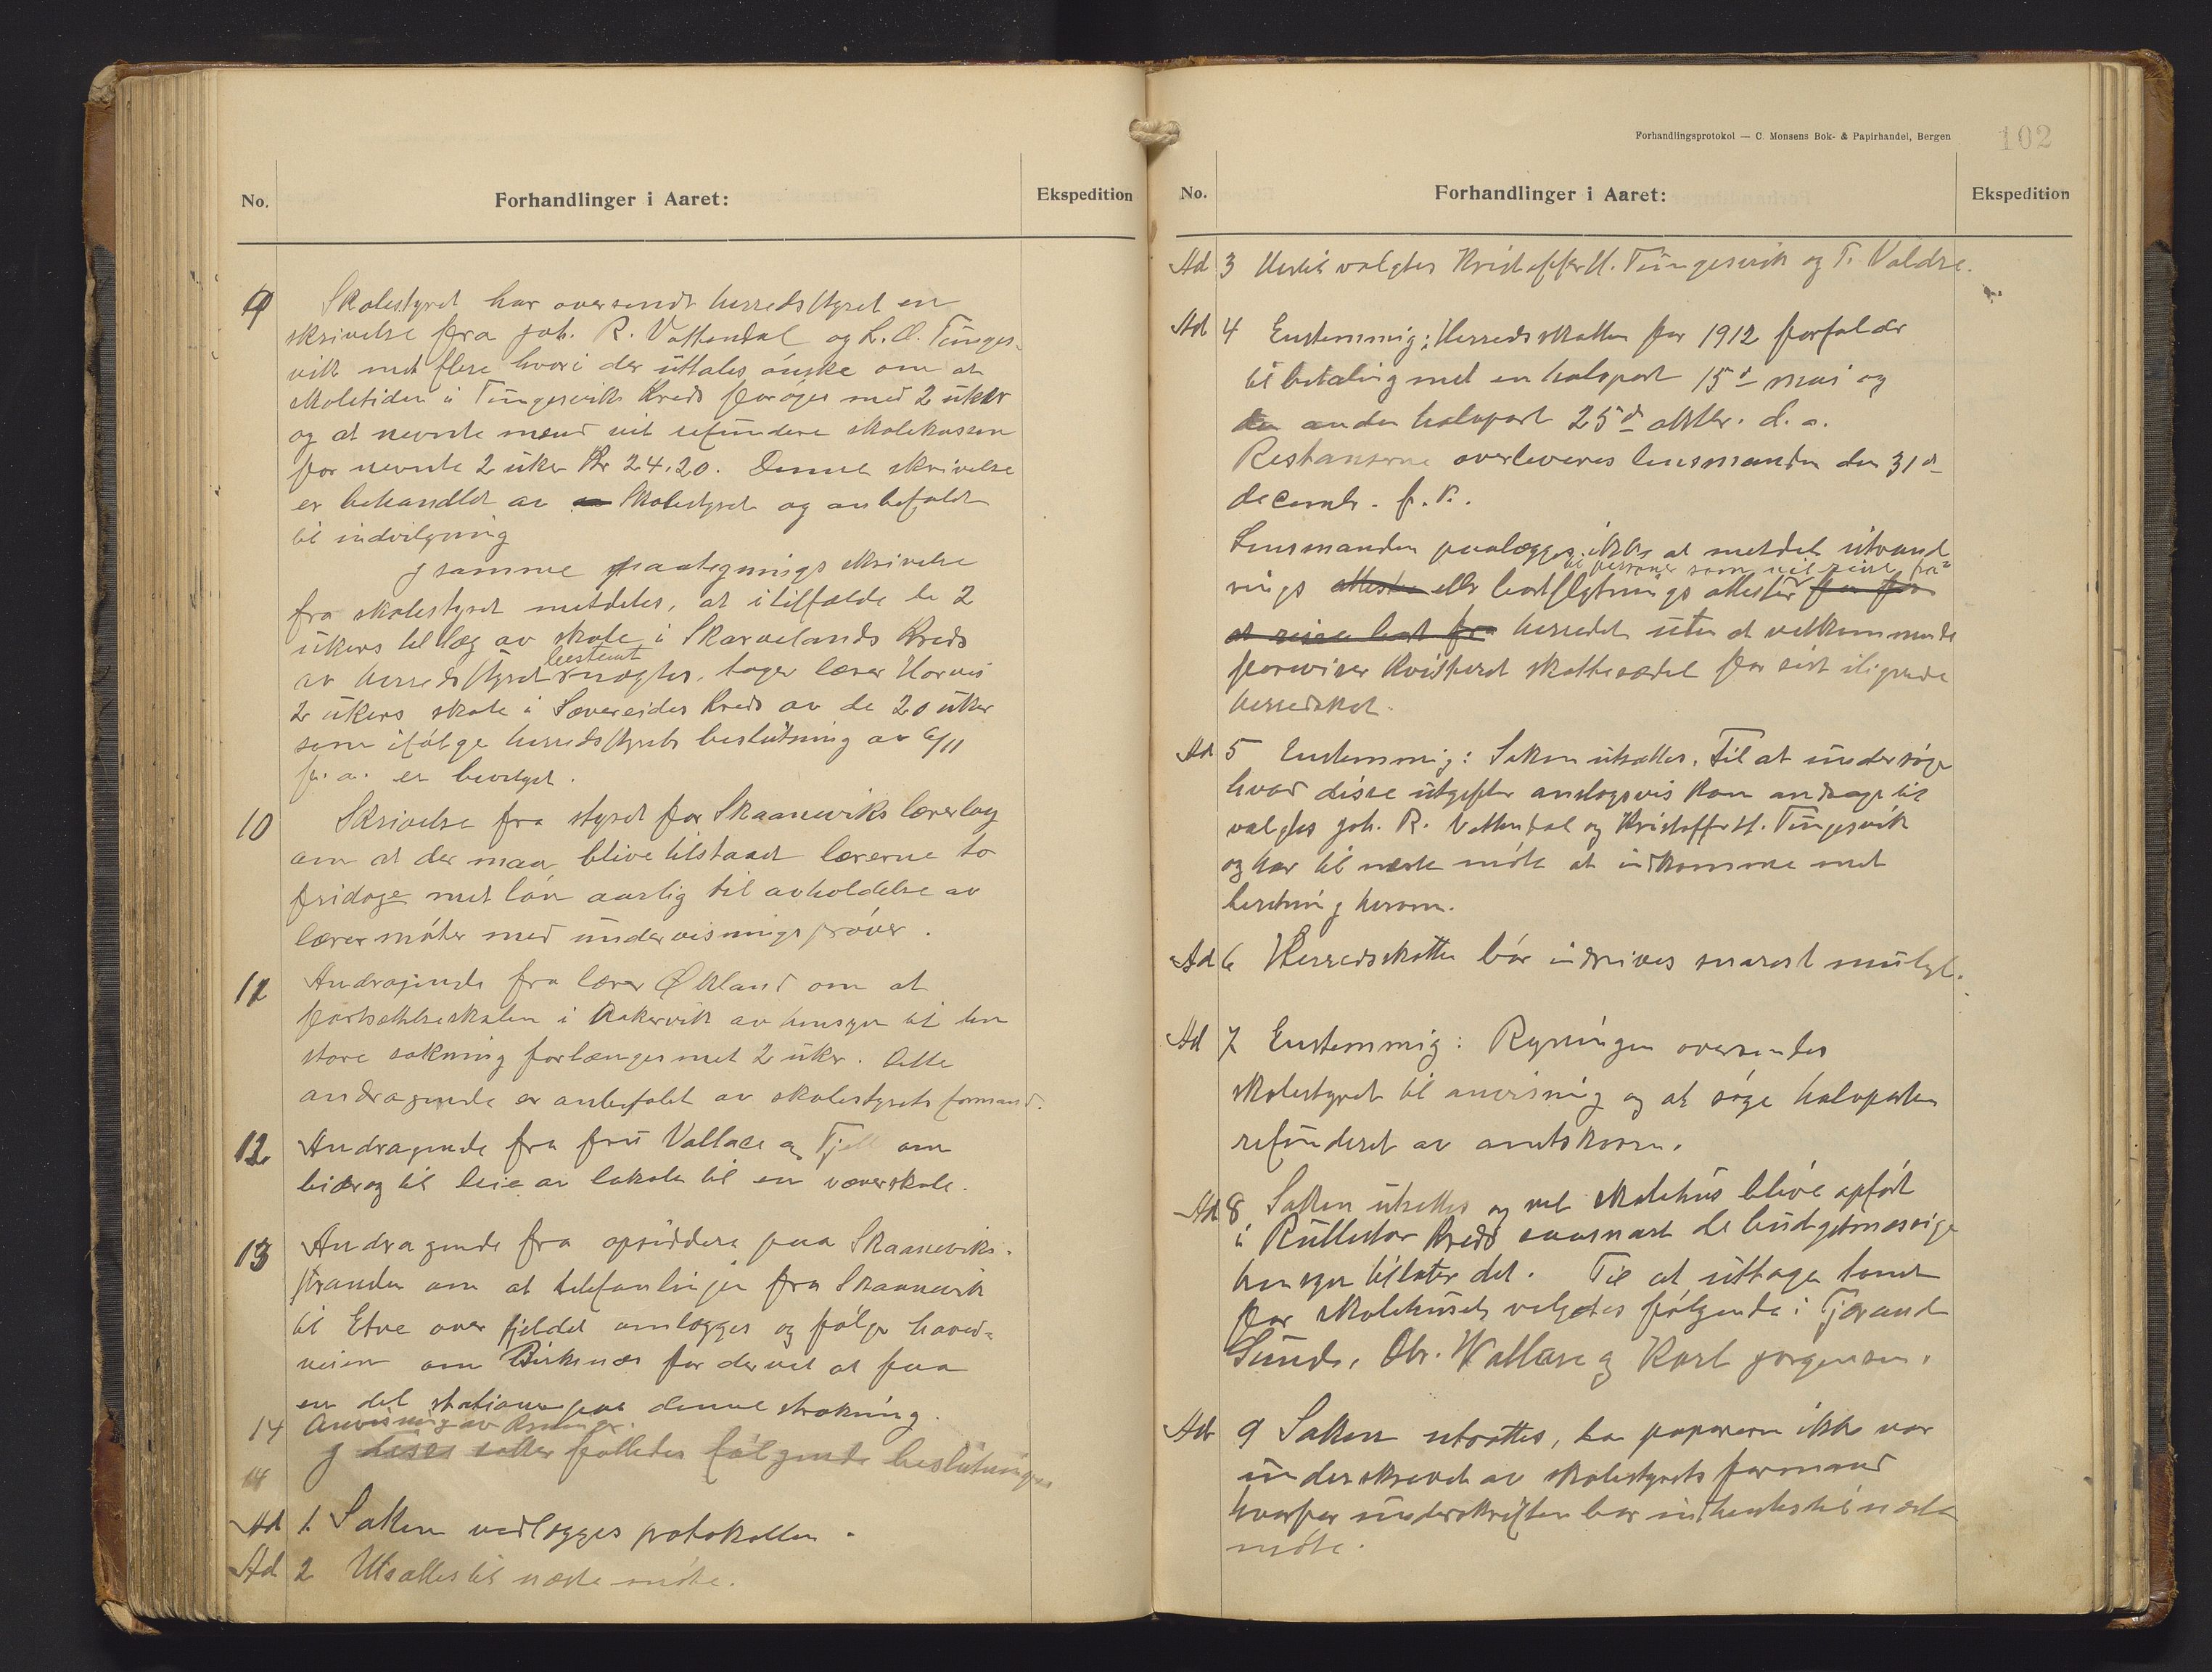 No.
Forhandlinger i Aaret:
Ekspedition
9 Skolestyret har oversendt herredsstyret en
skrivelse fra Joh. R. Vattendal og L. O. Tunges-
vik med flere hvori der uttales ønske om at
skoletiden i Tungesviks kreds forøges med 2 uker
og at nevnte mænd vil refundere skolekassen
for nevnte 2 uker Kr 24.20. Denne skrivelse
er behandlet av Skolestyret og anbefalet
til indvilgning
I samme paategnings skrivelse
fra skolestyret meddeles, at i tilfælde de 2
ukers tillæg av skole i Skarvelands kreds
av herredsstyret bestemt nægtes, tager lærer
2 ukers skole i Sævereides kreds av de 20 uker
som ifølge herredsstyrets beslutning av 6/11
f. a. er bevilget.
10 Skrivelse fra styret for Skaaneviks lærerlag
om at der maa blive tilstaaet lærerne to
fridage med løn aarlig til avholdelse av
lærermøter med undervisningsprøver.
11 Andragende fra lærer Økland om at
fortsættelseskolen i Aakervik av hensyn til den
store søkning forlænges met 2 uker. Dette
andragende er anbefalet av skolestyrets formand.
12 Andragende fra fru Vallace og Tj om
bidrag til leie av lokale til en væverskole.
13 Andragende fra opsiddere paa Skaaneviks-
stranden om at telefonlinjen fra Skaanevik
til Etne over fjeldet omlægges og følger hoved-
veien om Birkenæs for derved at faa
en del stationer paa denne strækning.
14 Anvisning av Regninger.
I disse saker fattedes følgende beslutninger
14
Ad 1. Saken vedlægges protokollen.
Ad 2 Utsættes til næste møte.
Forhandlingsprotokol — C. Monsens Bok- & Papirhandel, Bergen
102
No.
Forhandlinger i Aaret:
Ekspedition
Ad 3 Hertil valgtes Kristoffer H. Tungesvik og T. Valdre.
Ad 4 Enstemmig: Herredsskatten for 1912 forfalder
til betaling met en halvpart 15de mai og
den anden halvpart 25de oktbr. d. a.
Restanserne overleveres lensmanden den 31de
decembr. f. k.
Lensmanden paalægges ikke at meddele utvand-
til personer som vil reise fra
rings atteste eller bortflytnings attester
at reise bort fra herredet uten at vedkommende
foreviser kvitteret skatteseddel for sist ilignede
herredskat.
Ad 5 Enstemmig: Saken utsættes. Til at undersøge
hvad disse utgifter anslagsvis kan andrage til
valgtes Joh. R. Vattendal og Kristoffer H. Tungesvik
og har til næste møte at indkomme met
beretning herom.
Ad 6 Herredsskatten bør indrives snarest muligt.
Ad 7 Enstemmig: Regningen oversendes
skolestyret til anvisning og at søge halvparten
refunderet av amtskassen.
Ad 8 Saken utsettes og vil skolehus blive opført
i Rullestad kreds saasnart de budgetmæssige
hensyn tillater det. Til at uttage tomt
for skolehuset valgtes følgende: Tjerand
Sunde, Chr. Wallace og Karl Jørgensen.
Ad 9 Saken utsættes, da papirerne ikke var
underskrevet av skolestyrets formand
hvorfor underskriften bør indhentes til næste
møte.